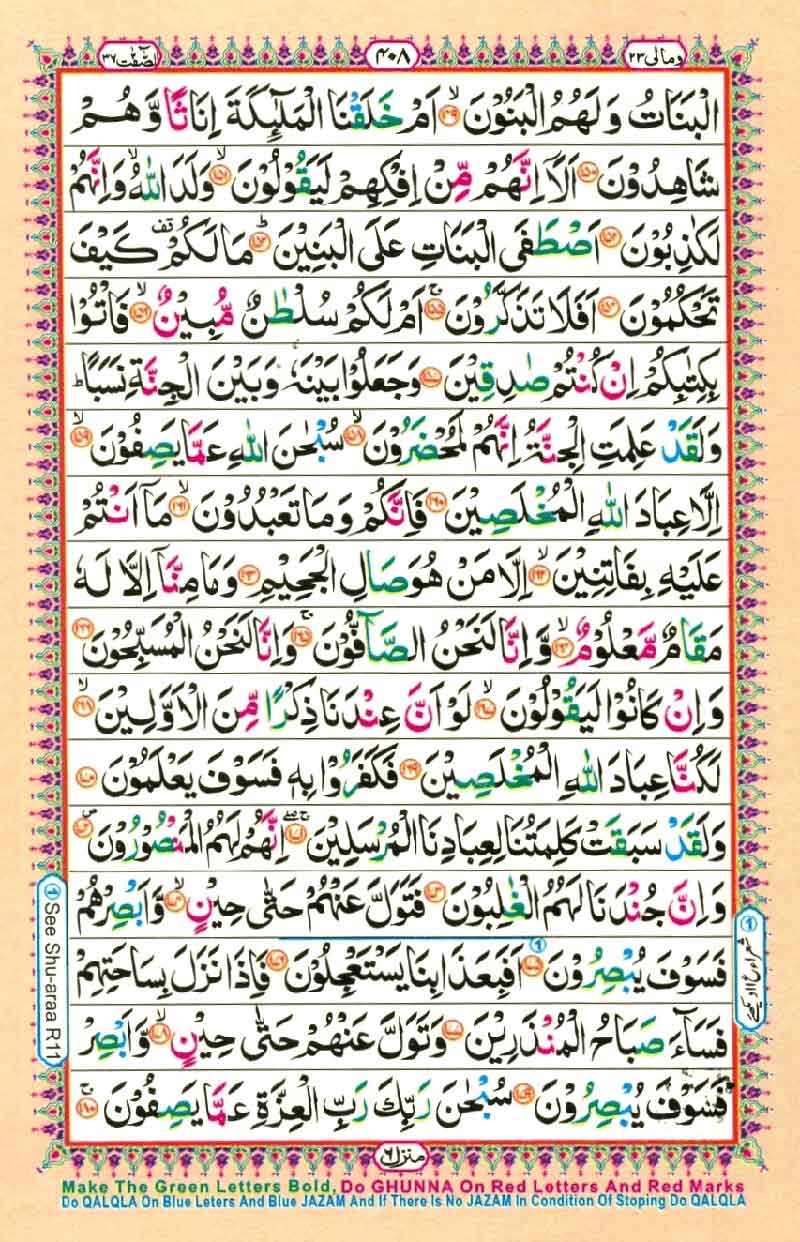 وَمَالِىَ ٢٣ ٤٠٨ الصّٰٓفّٰت ٣٧
الْبَنَاتُ وَلَهُمُ الْبَنُوْنَ ۙ﴿١٤٩﴾ اَمْ خَلَقْنَا الْمَلٰٓئِكَةَ اِنَاثًا وَّهُمْ
شَاهِدُوْنَ ﴿١٥٠﴾ اَلَاۤ اِنَّهُمْ مِّنْ اِفْكِهِمْ لَيَقُوْلُوْنَ ۙ﴿١٥١﴾ وَلَدَ اللّٰهُ ۙ وَاِنَّهُمْ
لَكٰذِبُوْنَ ﴿١٥٢﴾ اَصْطَفَى الْبَنَاتِ عَلَى الْبَنِيْنَ ؕ﴿١٥٣﴾ مَا لَكُمْ قف كَيْفَ
تَحْكُمُوْنَ ﴿١٥٤﴾ اَفَلَا تَذَكَّرُوْنَ ۚ﴿١٥٥﴾ اَمْ لَكُمْ سُلْطٰنٌ مُّبِيْنٌ ۙ﴿١٥٦﴾ فَاْتُوْا
بِكِتٰبِكُمْ اِنْ كُنْتُمْ صٰدِقِيْنَ ﴿١٥٧﴾ وَجَعَلُوْا بَيْنَهٗ وَبَيْنَ الْجِنَّةِ نَسَبًا ؕ
وَلَقَدْ عَلِمَتِ الْجِنَّةُ اِنَّهُمْ لَمُحْضَرُوْنَ ۙ﴿١٥٨﴾ سُبْحٰنَ اللّٰهِ عَمَّا يَصِفُوْنَ ۙ﴿١٥٩﴾
اِلَّا عِبَادَ اللّٰهِ الْمُخْلَصِيْنَ ﴿١٦٠﴾ فَاِنَّكُمْ وَمَا تَعْبُدُوْنَ ۙ﴿١٦١﴾ مَاۤ اَنْتُمْ
عَلَيْهِ بِفَاتِنِيْنَ ۙ﴿١٦٢﴾ اِلَّا مَنْ هُوَ صَالِ الْجَحِيْمِ ﴿١٦٣﴾ وَمَا مِنَّاۤ اِلَّا لَهٗ
مَقَامٌ مَّعْلُوْمٌ ۙ﴿١٦٤﴾ وَّاِنَّا لَنَحْنُ الصَّآفُّوْنَ ۚ﴿١٦٥﴾ وَاِنَّا لَنَحْنُ الْمُسَبِّحُوْنَ ﴿١٦٦﴾
وَاِنْ كَانُوْا لَيَقُوْلُوْنَ ۙ﴿١٦٧﴾ لَوْ اَنَّ عِنْدَنَا ذِكْرًا مِّنَ الْاَوَّلِيْنَ ۙ﴿١٦٨﴾
لَكُنَّا عِبَادَ اللّٰهِ الْمُخْلَصِيْنَ ﴿١٦٩﴾ فَكَفَرُوْا بِهٖ فَسَوْفَ يَعْلَمُوْنَ ﴿١٧٠﴾
وَلَقَدْ سَبَقَتْ كَلِمَتُنَا لِعِبَادِنَا الْمُرْسَلِيْنَ ۚۖ﴿١٧١﴾ اِنَّهُمْ لَهُمُ الْمَنْصُوْرُوْنَ ۪﴿١٧٢﴾
وَاِنَّ جُنْدَنَا لَهُمُ الْغٰلِبُوْنَ ﴿١٧٣﴾ فَتَوَلَّ عَنْهُمْ حَتّٰى حِيْنٍ ۙ﴿١٧٤﴾ وَّاَبْصِرْهُمْ
فَسَوْفَ يُبْصِرُوْنَ ﴿١٧٥﴾ اَفَبِعَذَابِنَا يَسْتَعْجِلُوْنَ ﴿١٧٦﴾ فَاِذَا نَزَلَ بِسَاحَتِهِمْ
فَسَآءَ صَبَاحُ الْمُنْذَرِيْنَ ﴿١٧٧﴾ وَتَوَلَّ عَنْهُمْ حَتّٰى حِيْنٍ ۙ﴿١٧٨﴾ وَّاَبْصِرْ
فَسَوْفَ يُبْصِرُوْنَ ﴿١٧٩﴾ سُبْحٰنَ رَبِّكَ رَبِّ الْعِزَّةِ عَمَّا يَصِفُوْنَ ۚ﴿١٨٠﴾
① See Shu-araa R11
منزل ٦
Make The Green Letters Bold, Do GHUNNA On Red Letters And Red Marks
Do QALQLA On Blue Leters And Blue JAZAM And If There Is No JAZAM In Condition Of Stoping Do QALQLA